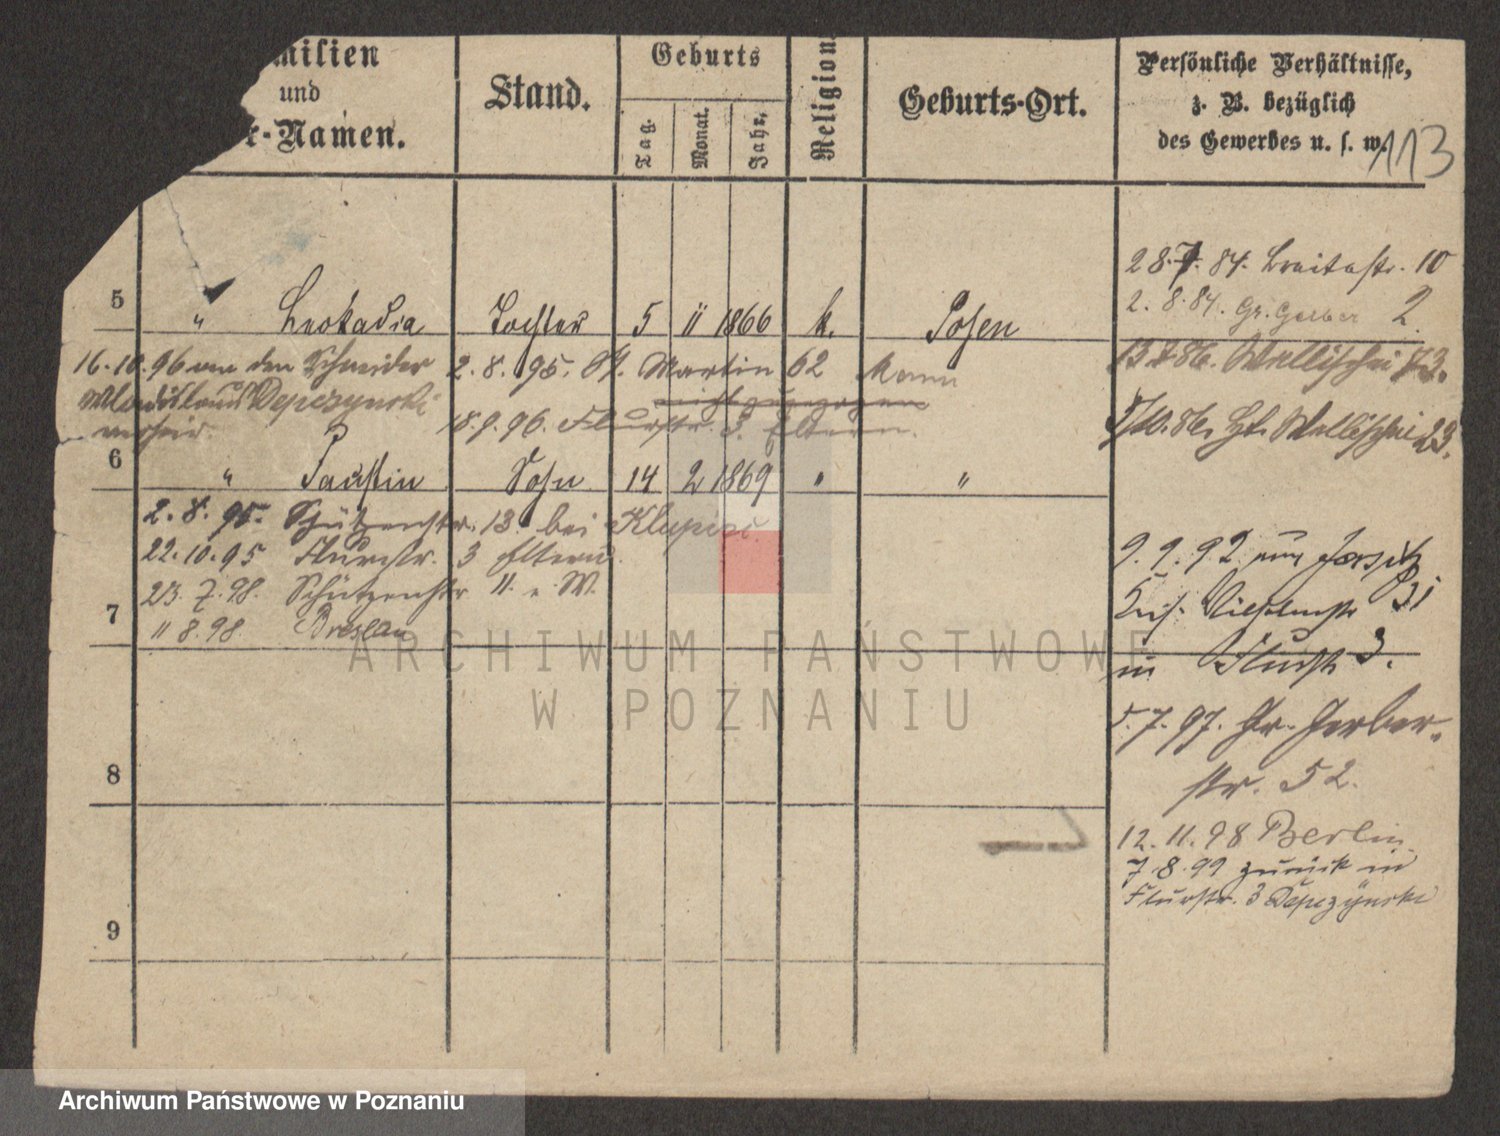 milien
und
r-Namen.
Stand.
Geburts
Tag.
Monat.
Jahr.
Religion.
Geburts-Ort.
Persönliche Verhältnisse,
z. B. bezüglich
des Gewerbes u. s. w.
113
28.7.84. Breitestr. 10
2.8.84. Gr. Gerber 2
5 " Leokadia Tochter 5 11 1866 k. Posen
16.10.96 an den Schneider
Wladislaus Depczynski
2.8.95. St. Martin 62
18.9.96. Flurstr. 3. Eltern.
86. Wallischei 73.
5/10.86. Wallischei 23.
6 " Faustin Sohn 14 2 1869 " "
2.8.95. Schützenstr. 13. bei
22.10.95 Flurstr. 3 Eltern.
23.7.98. Schützenstr 11.
11 8.98. Breslau
9.9.92. Jersitz
31
in Flurstr 3.
7
5.7.97. Gr. Gerber-
str. 52.
8
12.11.98 Berlin
7.8.99 zurück in
Flurstr. 3 Depczynski
9
ARCHIWUM PAŃSTWOWE
W POZNANIU
Archiwum Państwowe w Poznaniu